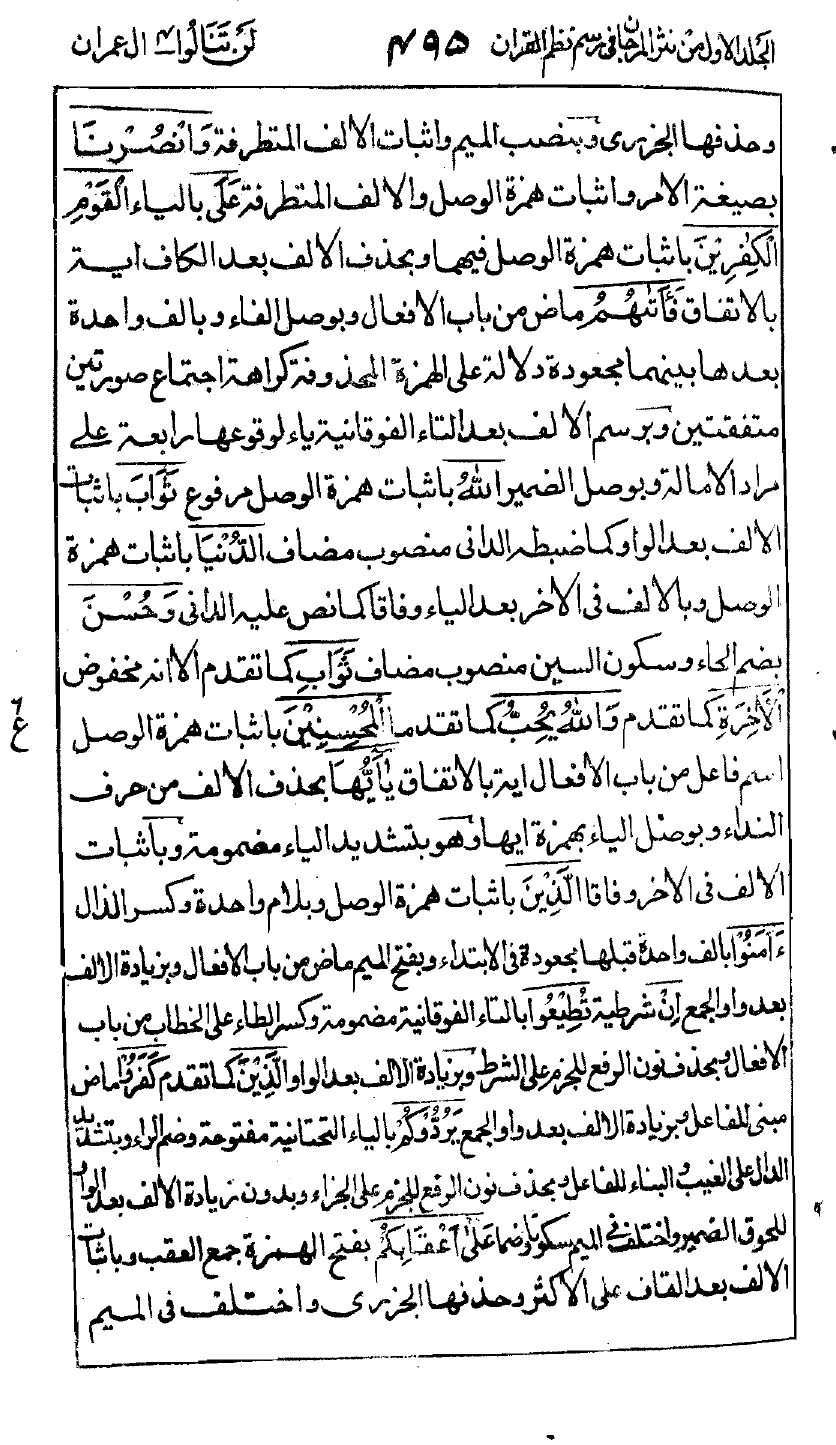 الجلد الاول من نثر المرجان فی رسم نظم القران ۴۹۵ لن تنالوا ۴ ال عمران
وحذفها الجزری وبنصب الميم واثبات الالف المتطرفة وَانْصُرْنَا
بصيغة الامر واثبات همزة الوصل والالف المتطرفة عَلَى بالياء الْقَوْمِ
الْكٰفِرِيْنَ باثبات همزة الوصل فيهما وبحذف الالف بعد الكاف اية
بالاتفاق فَأَتٰىهُمُ ماض من باب الافعال وبوصل الفاء وبالف واحدة
بعدها بينهما مجعودة دلالة على الهمزة المحذوفة كراهة اجتماع صورتين
متفقتين وبرسم الالف بعد التاء الفوقانية ياء لوقوعها رابعة على
مراد الامالة وبوصل الضمير اللهُ باثبات همزة الوصل مرفوع ثَوَابَ باثبات
الالف بعد الواو كما ضبطه الدانی منصوب مضاف الدُّنْيَا باثبات همزة
الوصل وبالالف فی الاخر بعد الياء وفاقا كما نص عليه الدانی وَحُسْنَ
بضم الحاء وسكون السين منصوب مضاف ثَوَابِ كما تقدم الا انه مخفوض
الْاٰخِرَةِ كما تقدم وَاللهُ يُحِبُّ كما تقدما الْمُحْسِنِيْنَ باثبات همزة الوصل
اسم فاعل من باب الافعال اية بالاتفاق يٰاَيُّهَا بحذف الالف من حرف
النداء وبوصل الياء بهمزة ايها وهو بتشديد الياء مضمومة وباثبات
الالف فی الاخر وفاقا الَّذِيْنَ باثبات همزة الوصل وبلام واحدة وكسر الذال
ءَامَنُوْا بالف واحدة قبلها مجعودة فی الابتداء وبفتح الميم ماض من باب الافعال وبزيادة الالف
بعد واو الجمع اِنْ شرطية تُطِيْعُوْا بالتاء الفوقانية مضمومة وكسر الطاء على الخطاب من باب
الافعال وبحذف نون الرفع للجزم على الشرط وبزيادة الالف بعد الواو الَّذِيْنَ كما تقدم كَفَرُوْا ماض
مبنی للفاعل وبزيادة الالف بعد واو الجمع يَرُدُّوْكُمْ بالياء التحتانية مفتوحة وضم الراء وبتشديد
الدال على الغيب والبناء للفاعل وبحذف نون الرفع للجزم على الجزاء وبدون زيادة الالف بعد الواو
للحوق الضمير واختلف فی الميم سكونا وضما عَلٰى اَعْقَابِكُمْ بفتح الهمزة جمع العقب وباثبات
الالف بعد القاف على الاكثر وحذفها الجزری واختلف فی الميم
ع ٦